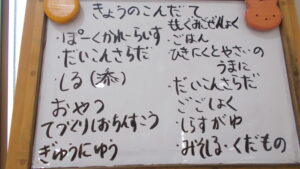 きょうのこんだて
・ぽーくかれーらいす
・だいこんさらだ
・しる(黍)
おやつ
てづくりしおちんすこう
ぎゅうにゅう
・ごはん
ひきにくとやさいの
うまに
・だいこんさらだ
ごごしょく
・しらすがゆ
・みそしる・くだもの